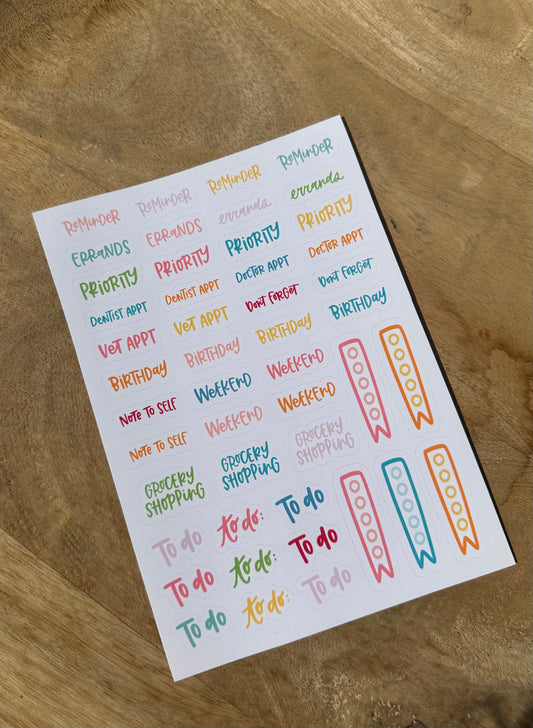 Reminder
Reminder
Reminder
Reminder
Errands
Errands
errands
errands
Priority
Priority
Priority
Priority
Dentist Appt
Dentist Appt
Doctor Appt
Doctor Appt
Vet Appt
Vet Appt
Dont Forget
Dont Forget
Birthday
Birthday
Birthday
Birthday
Note To Self
Weekend
Weekend
Note To Self
Weekend
Weekend
Grocery
Shopping
Grocery
Shopping
Grocery
Shopping
To do
to do:
To do
To do
to do:
To do
To do
to do:
To do